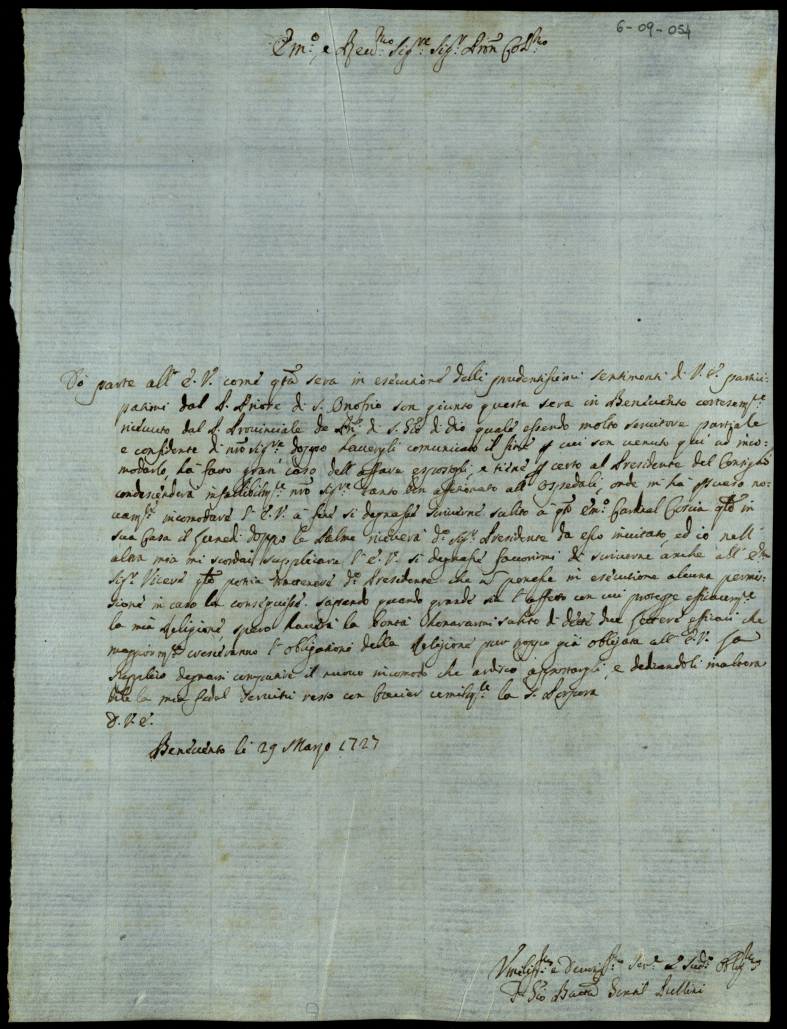 6-09-054
Em.º, e Rev.mo Sig.re Sig.r Pron Col.mo
Dò parte all' E. V. come qta sera in esecutione delli prudentissimi sentimenti di V. E. partici-
patimi dal P. Priore di S. Onofrio son giunto questa sera in Benevento cortesem.te
ricevuto dal P. Provinciale de di S. Gio di Dio quale essendo molto servitore partiale
e confidente di nro Sig.re doppo havergli comunicato il fine p cui son venuto qui ad inco-
modarlo, ha fatto gran caso dell' affare espostogli, e tiene p certo che al Presidente del Consiglio
condescenderà infallibilm.te nro Sig.re tanto ben affetionato all' Ospedali, onde mi ha
vam.te incomodare l' E. V. a fine si degnasse scrivere subito a qto Em.º Cardinal Coscia qto in
sua casa il Giovedì doppo le Palme riceverà d.º Sig.r Presidente da esso invitato, ed io nell'
altra mia mi scordai supplicare l' E. V. si degnasse favorirmi di scriverne anche all' Em
Sig.r Vicerè potria trattenere d.º Presidente che non ponesse in esecutione alcuna permis-
sione in caso la conseguisse. Sapendo quando grande sia l' affetto con cui protege efficacem.te
la mia Religione spero haverà la bontà honorarmi subito di dette due lettere efficaci che
maggiorm.te cresceranno l' obligationi della Religione pur troppo già obligata all' E. V. La
supplico degnarsi compatire il nuovo incomodo che ardisco apportargli, e dedicandoli inaltera-
bile la mia fedel servitù resto con baciar umilm.te la S. Porpora
D. V. E.
Benevento li 29 Marzo 1727
Umiliss.mo e Devotiss.mo Ser.e e Sudº Oblig.mo
Fr Gio Batta Genrl Bellini